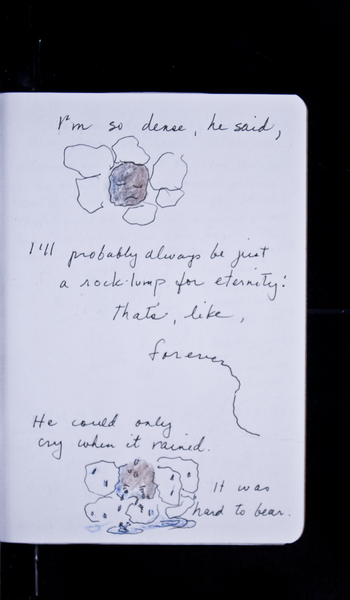 I'm so dense, he said,
I'll probably always be just
a rock-lump for eternity:
that's, like,
forever
He could only
cry when it rained.
It was
hard to bear.